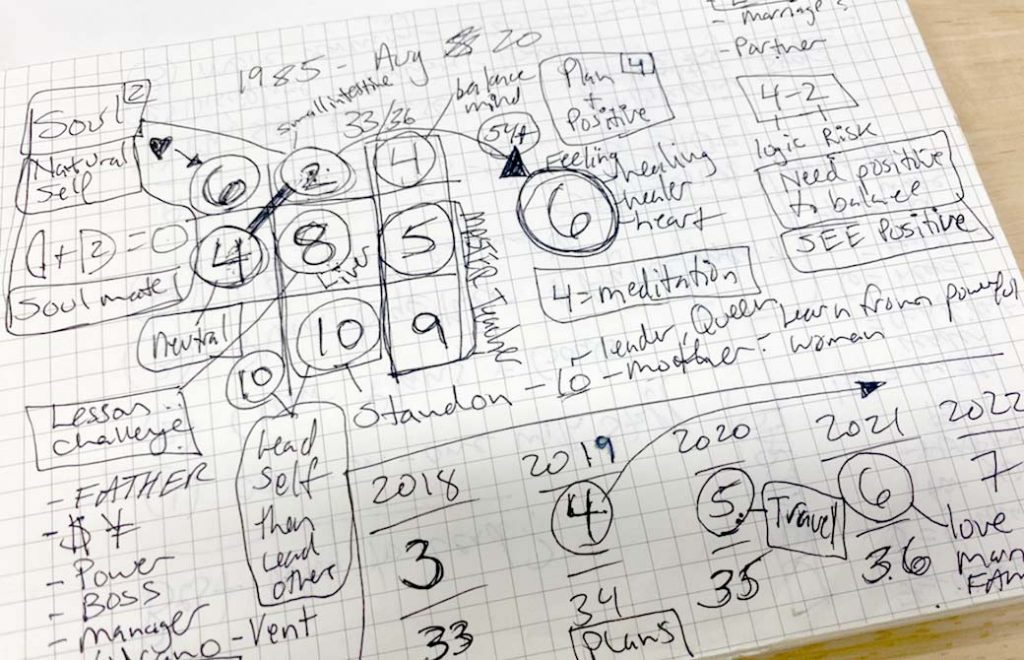 - Marriage's
- Partner
1985 - Aug 20
small intestine
33/36
balance
mind
54+
Plan 4
+
Positive
4-2
logic Risk
Need positive
to balance
SEE Positive
Soul 2
Natural
Self
A+B=0
Soul mate
6 2 4
4 8 5
Liver
10 9
Master Teacher
Neutral
10
Feeling
6
healing
healer
heart
4=meditation
Standon - 10 - leader, Queen
- mother - Learn from powerful
woman
Lesson:
challenge:
- FATHER
- $ ¥
- Power
- BOSS
- Manager
- Vent
Lead
Self
then
Lead
others
2018 2019 2020 2021 2022
3 4 5. Travel 6 7
33 34 35 36
Plans
love
FAM